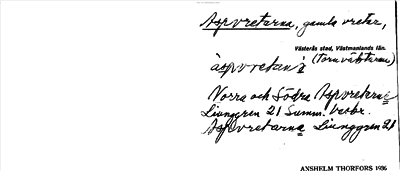 Aspvretarna, gamla vretar,
Västerås stad, Västmanlands län.
(Tornvaktarna)
àspvretan̂a
Norra och Södra Aspvretarne
Ljunggren 21 Summ. Verbr.
Aspvretarna Ljunggren 21
ANSHELM THORFORS 1936